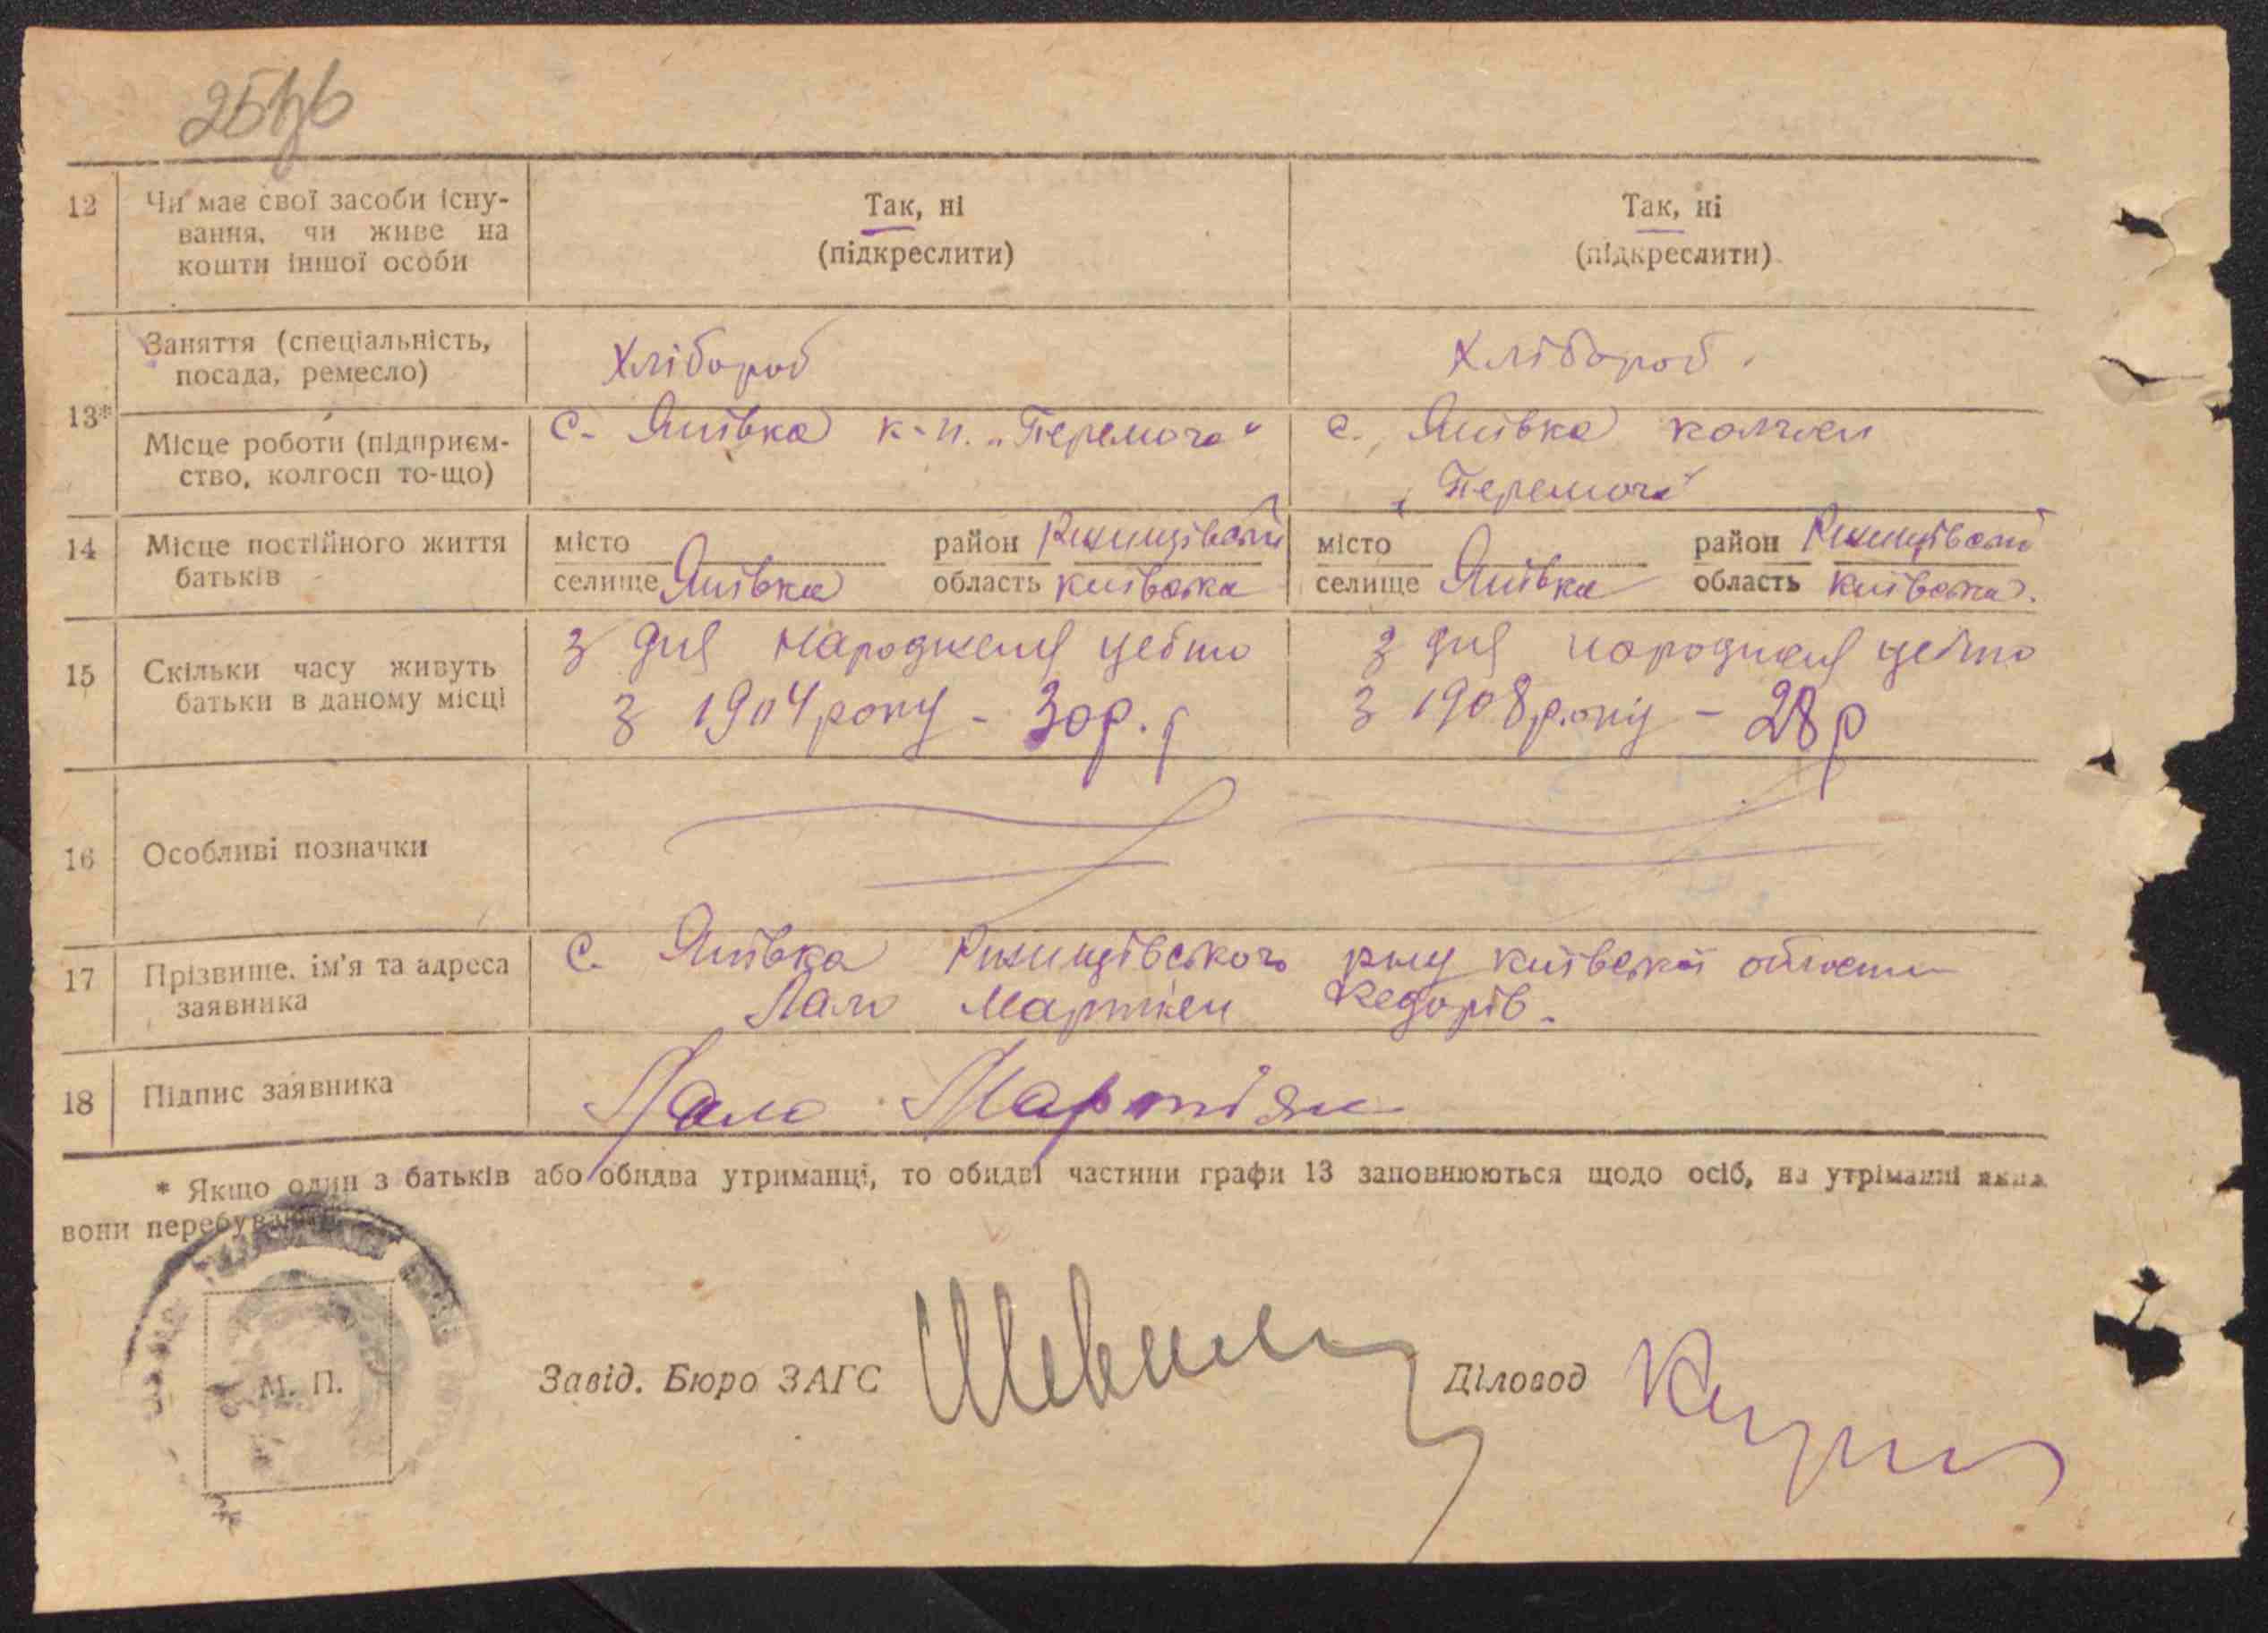 25
12 Чи має свої засоби існу-
вання, чи живе на
кошти іншої особи
Так, ні
(підкреслити)
Так, ні
(підкреслити)
13*
Заняття (спеціальність,
посада, ремесло)
Хлібороб
Хлібороб.
Місце роботи (підприєм-
ство, колгосп то-що)
с. Яшівка к-п. „Перемога“
с. Яшівка колгосп
„Перемога“
14 Місце постійного життя
батьків
місто район Ржищівський
селище Яшівка область Київська
місто район Ржищівський
селище Яшівка область Київська.
15 Скільки часу живуть
батьки в даному місці
З дня народження цебто
з 1904 року - 30 р.
З дня народження цебто
з 1908 року - 28 р
16 Особливі позначки
17 Прізвище, ім'я та адреса
заявника
с. Яшівка Ржищівського р-ну Київської області
Лало Мартіян Федорів.
18 Підпис заявника
Лало Мартіян
* Якщо один з батьків або обидва утриманці, то обидві частини графи 13 заповнюються щодо осіб, на утріманні яких
вони перебувають.
М. П.
Завід. Бюро ЗАГС
Діловод